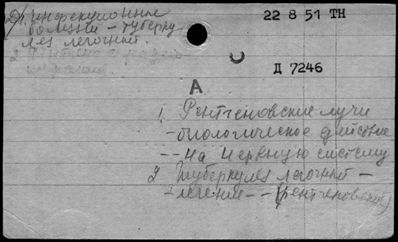 22 8 51 ТН
2) Инфекционные
болезни – туберку
лез легочный.
Д 7246
А
1. Рентгеновские лучи
– биологическое действие
– – на нервную систему
2 Туберкулез легочный –
– лечение – (рентгеновск